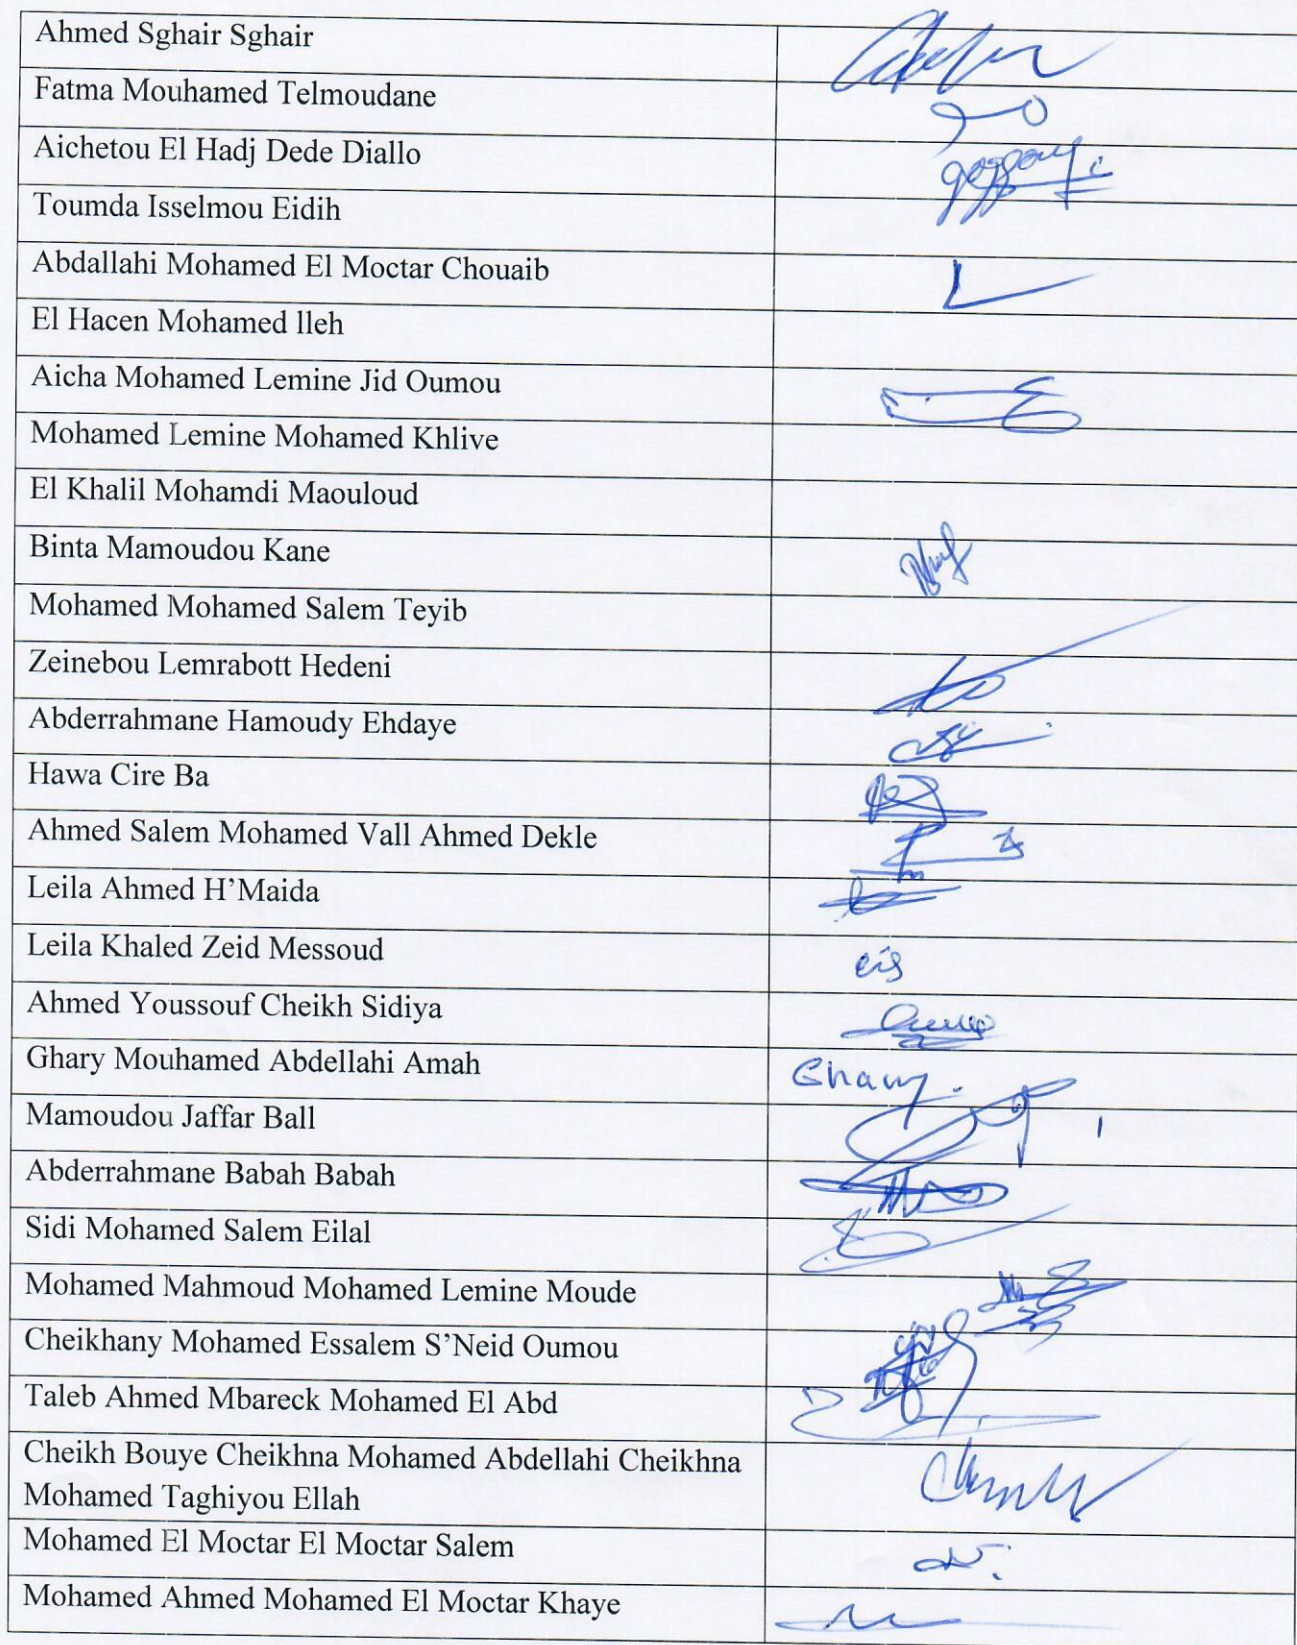 Ahmed Sghair Sghair
Fatma Mouhamed Telmoudane
Aichetou El Hadj Dede Diallo
Toumda Isselmou Eidih
Abdallahi Mohamed El Moctar Chouaib
El Hacen Mohamed lleh
Aicha Mohamed Lemine Jid Oumou
Mohamed Lemine Mohamed Khlive
El Khalil Mohamdi Maouloud
Binta Mamoudou Kane
Mohamed Mohamed Salem Teyib
Zeinebou Lemrabott Hedeni
Abderrahmane Hamoudy Ehdaye
Hawa Cire Ba
Ahmed Salem Mohamed Vall Ahmed Dekle
Leila Ahmed H’Maida
Leila Khaled Zeid Messoud
Ahmed Youssouf Cheikh Sidiya
Ghary Mouhamed Abdellahi Amah
Mamoudou Jaffar Ball
Abderrahmane Babah Babah
Sidi Mohamed Salem Eilal
Mohamed Mahmoud Mohamed Lemine Moude
Cheikhany Mohamed Essalem S’Neid Oumou
Taleb Ahmed Mbareck Mohamed El Abd
Cheikh Bouye Cheikhna Mohamed Abdellahi Cheikhna
Mohamed Taghiyou Ellah
Mohamed El Moctar El Moctar Salem
Mohamed Ahmed Mohamed El Moctar Khaye